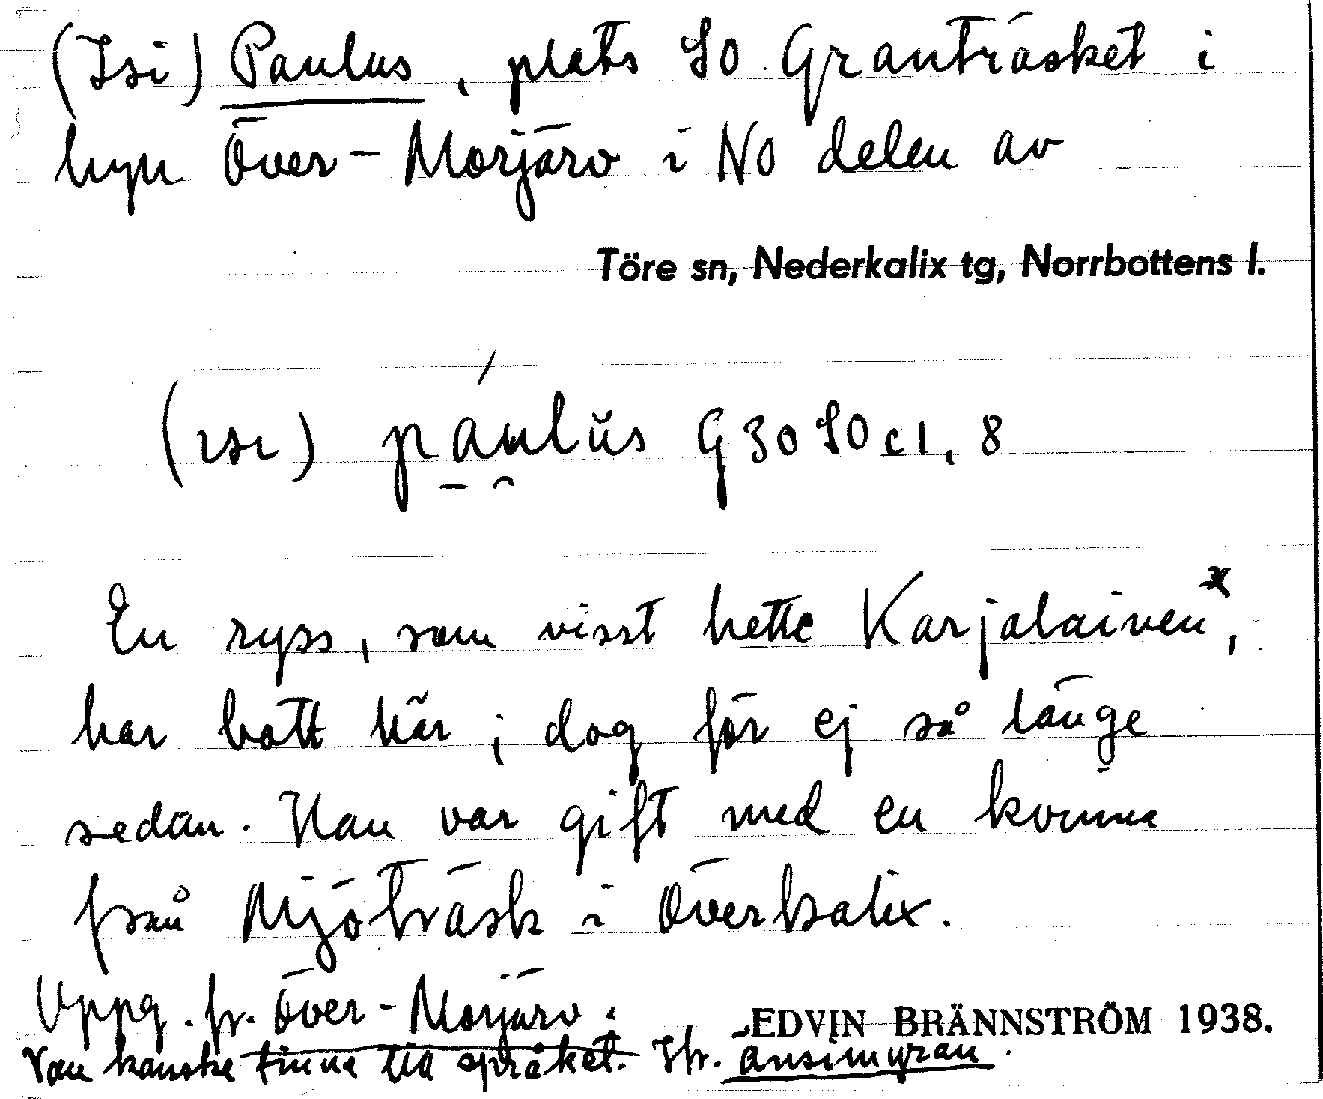 (Isi) Paulus, plats SO Granträsket i
byn Över-Morjärv i NO delen av
Töre sn, Nederkalix tg, Norrbottens l.
(ısı) páulŭs G 30 SO c 1, 8
En ryss, som visst hette Karjalainen*,
har bott här; dog för ej så länge
sedan. Han var gift med en kvinna
från Mjöträsk i Överkalix.
Uppg. fr. Över-Morjärv.
EDVIN BRÄNNSTRÖM 1938.
Van kanske finne till språket. Jfr. ansimyran.